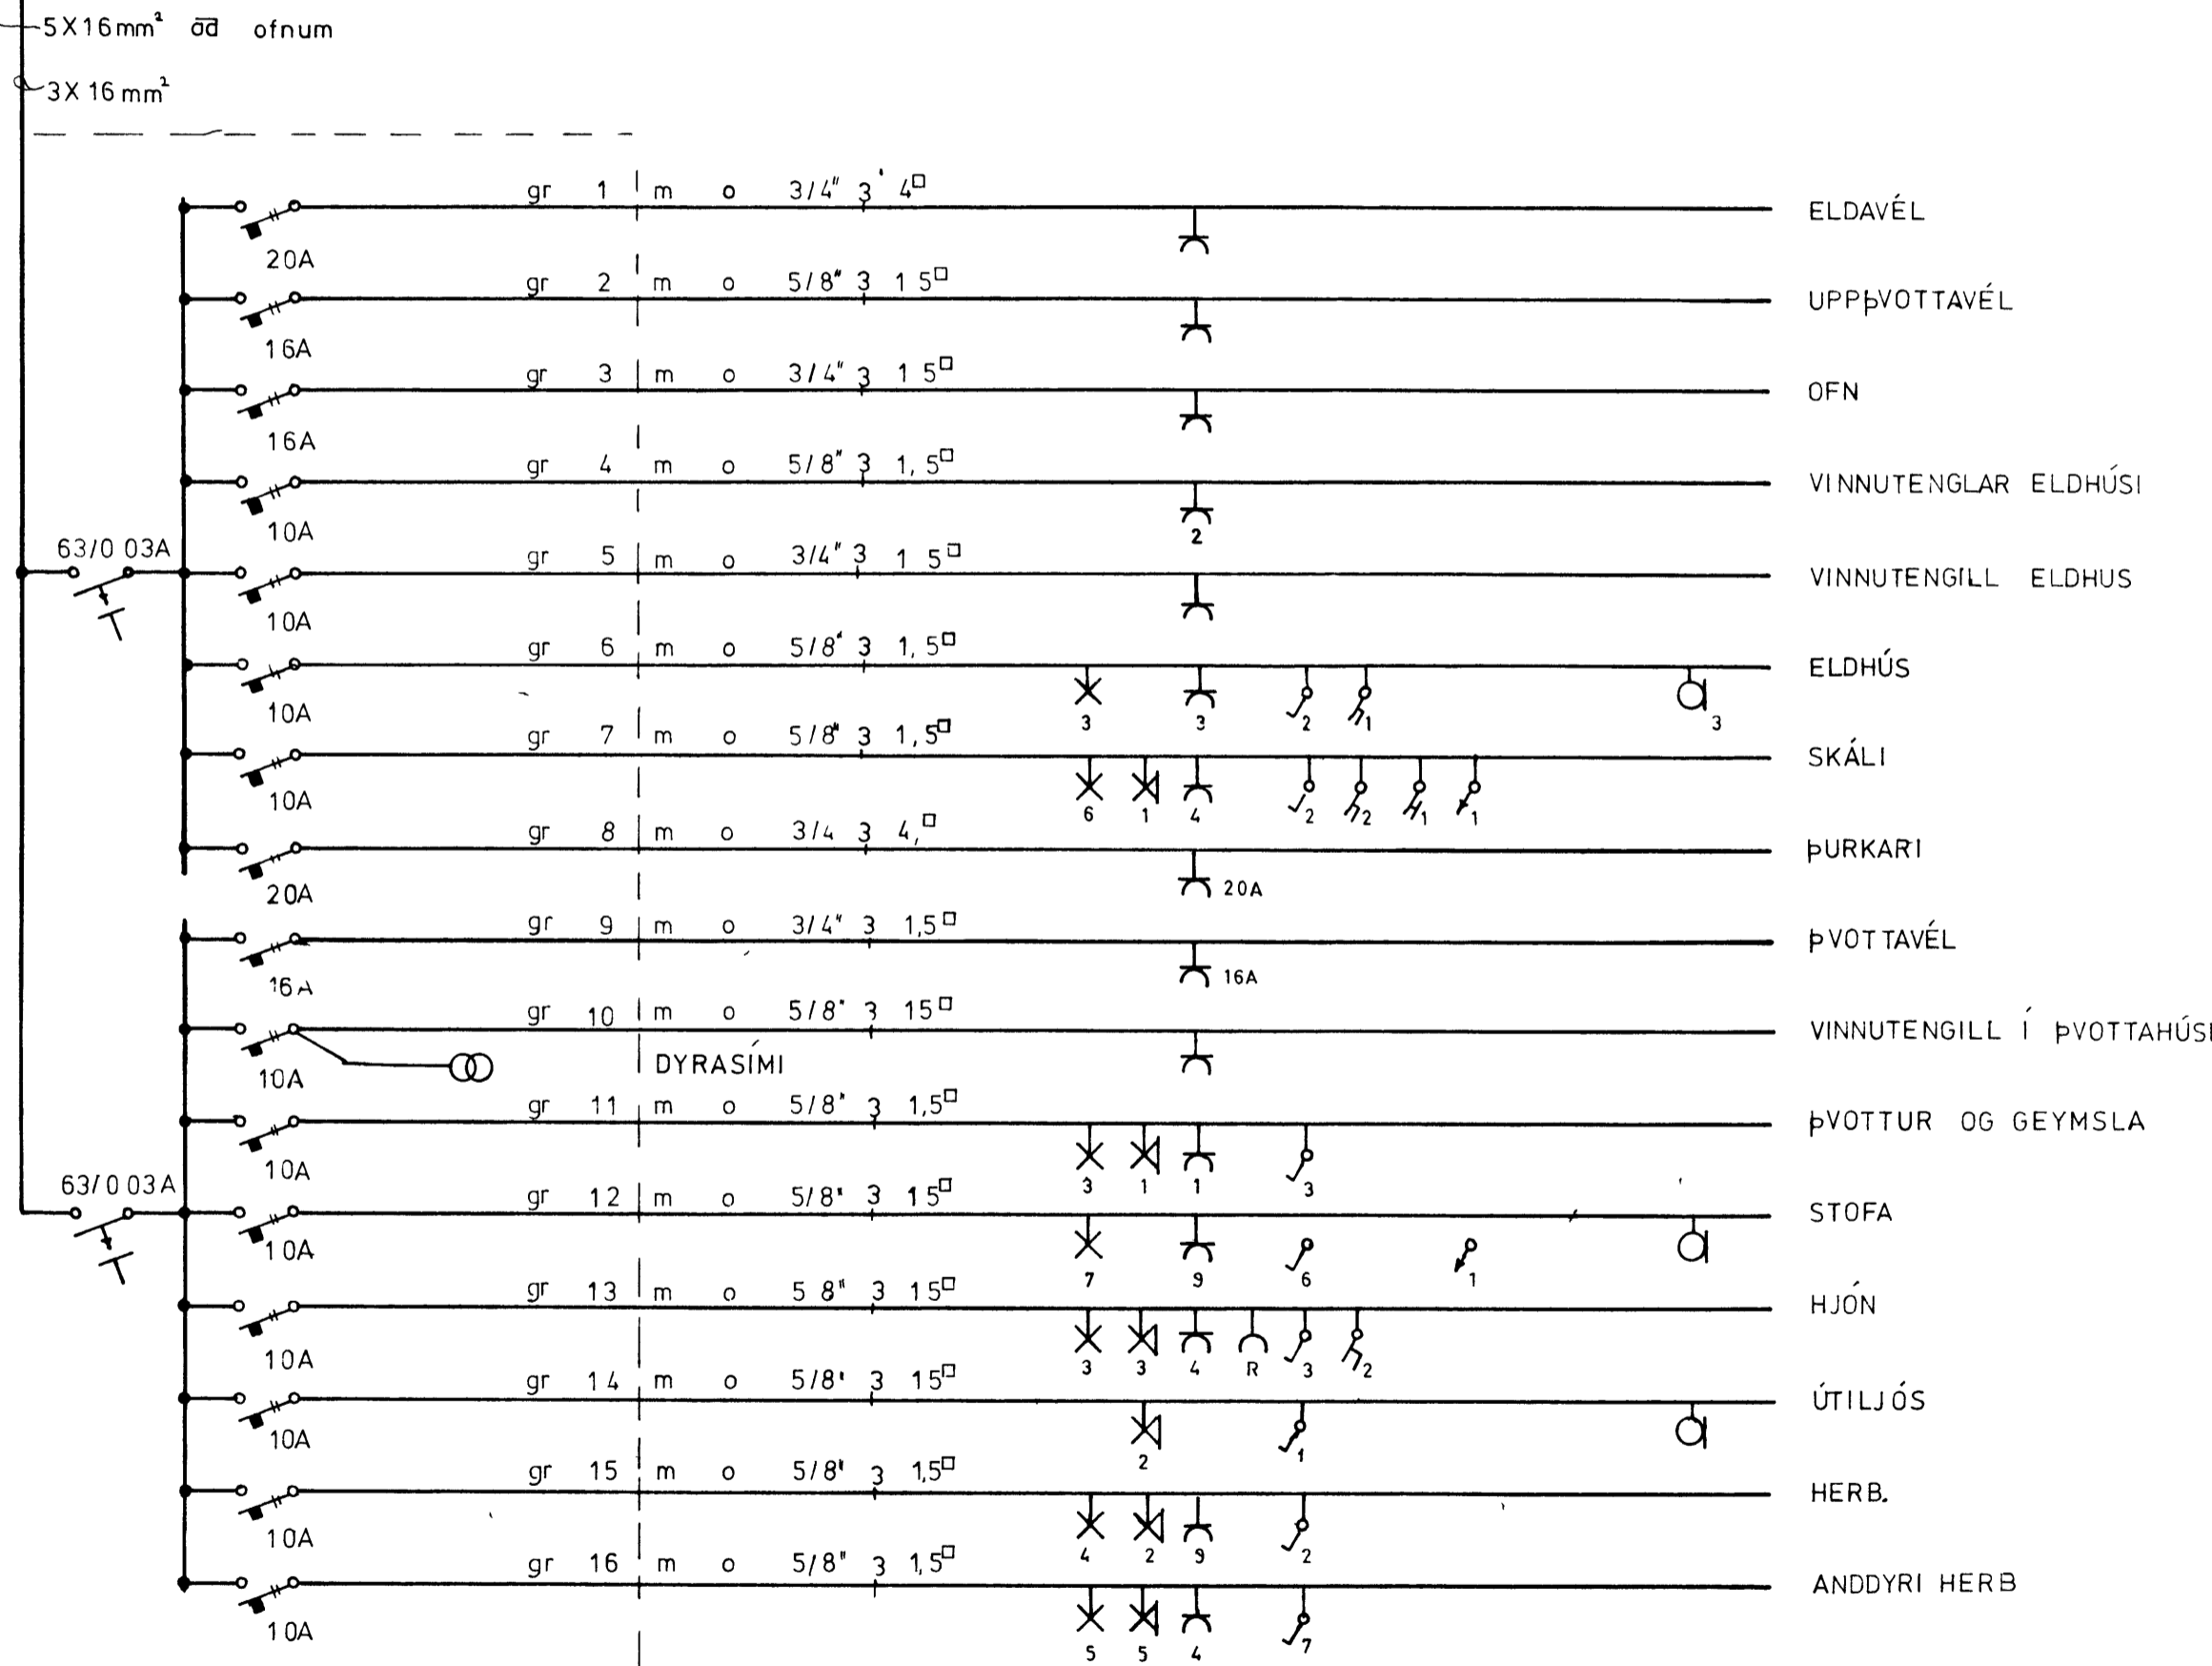 5X16mm² ad ofnum
3X16mm²
gr 1 m o 3/4" 3 4□ ELDAVÉL
20A
gr 2 m o 5/8" 3 1 5□ UPPÞVOTTAVÉL
16A
gr 3 m o 3/4" 3 1 5□ OFN
16A
gr 4 m o 5/8" 3 1,5□ VINNUTENGLAR ELDHÚSI
10A 2
63/0 03A gr 5 m o 3/4" 3 1 5□ VINNUTENGILL ELDHUS
10A
gr 6 m o 5/8" 3 1,5□ ELDHÚS
10A 3 3 2 1 3
gr 7 m o 5/8" 3 1,5□ SKÁLI
10A 6 1 4 2 2 1 1
gr 8 m o 3/4 3 4,□ ÞURKARI
20A 20A
gr 9 m o 3/4" 3 1,5□ ÞVOTTAVÉL
16A 16A
gr 10 m o 5/8" 3 15□ VINNUTENGILL Í ÞVOTTAHÚSI
10A DYRASÍMI
gr 11 m o 5/8" 3 1,5□ ÞVOTTUR OG GEYMSLA
10A 3 1 1 3
63/0 03A gr 12 m o 5/8" 3 15□ STOFA
10A 7 9 6 1
gr 13 m o 5 8" 3 15□ HJÓN
10A 3 3 4 R 3 2
gr 14 m o 5/8" 3 15□ ÚTILJÓS
10A 2 1
gr 15 m o 5/8" 3 1,5□ HERB.
10A 4 2 9 2
gr 16 m o 5/8" 3 1,5□ ANDDYRI HERB
10A 5 5 4 7